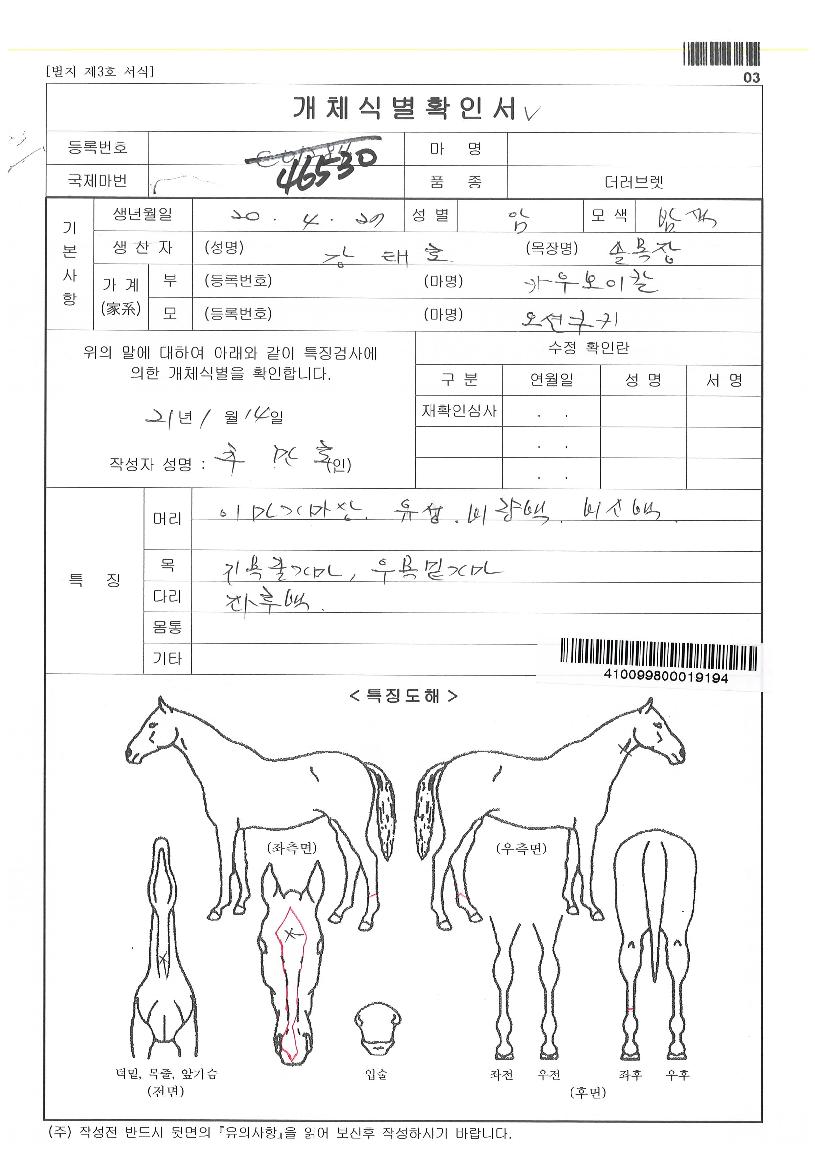 [별지 제3호 서식]
03
개체식별확인서
등록번호 46530 마 명
국제마번 품 종 더러브렛
기본사항
생년월일 20 . 4 . 27 성 별 암 모 색 밤색
생 산 자 (성명) 강 태 호 (목장명) 솔목장
가 계 (家系)
부 (등록번호) (마명) 카우보이칼
모 (등록번호) (마명) 오선쿠키
위의 말에 대하여 아래와 같이 특징검사에
의한 개체식별을 확인합니다.
21년 1월 14일
작성자 성명 : 호 (인)
수정 확인란
구 분 연월일 성 명 서 명
재확인심사 . .
. .
. .
특 징
머리 이마가마상. 유성. 비량백. 비신백.
목 목줄가마, 우목밑가마
다리 좌후백.
몸통
기타
410099800019194
< 특징도해 >
(좌측면) (우측면)
턱밑, 목줄, 앞가슴
(전면)
입술
좌전 우전 좌후 우후
(후면)
(주) 작성전 반드시 뒷면의 『유의사항』을 읽어 보신후 작성하시기 바랍니다.